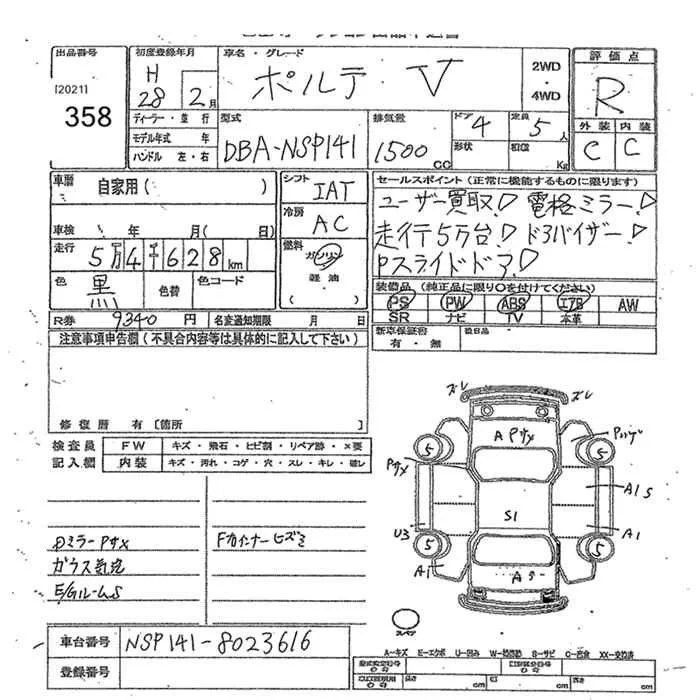 出品番号
[2021]
358
初度登録年月
H
28 2月
車名・グレード
ポルテ V
2WD
・
4WD
評価点
R
外装 内装
C C
ディーラー・並行
モデル年式 年
ハンドル 左・右
型式
DBA-NSP141
排気量
1500 CC
ドア 4
定員 5人
形状
積載 Kg
車歴
自家用( )
車検 年 月( 日)
走行
5万4千628km
色 黒
色替
色コード
シフト
IAT
冷房
AC
燃料
ガソリン
軽油
( )
セールスポイント(正常に機能するものに限ります)
ユーザー買取! 電格ミラー!
走行5万台! ドアバイザー!
Pスライドドア!
装備品(純正品に限り○を付けてください)
PS PW ABS エアB AW
SR ナビ TV 本革
新車保証書
有・無
後日品
R券 9340円
名変通知期限 月 日
注意事項申告欄(不具合内容等は具体的に記入して下さい)
修復歴 有〔箇所 〕
検査員
記入欄
FW キズ・飛石・ヒビ割・リペア跡・×要
内装 キズ・汚れ・コゲ・穴・スレ・キレ・破レ
ズレ
ズレ
A Pサメ
5
5
Pサメ
A1S
S1
U3
A1
5
5
スペア
Dミラー Pサメ
ガラス気泡
F
A-キズ E-エクボ U-凹み S-サビ C-腐食 XX-交換済
車台番号 NSP141-8023616
登録番号
cm
cm
cm